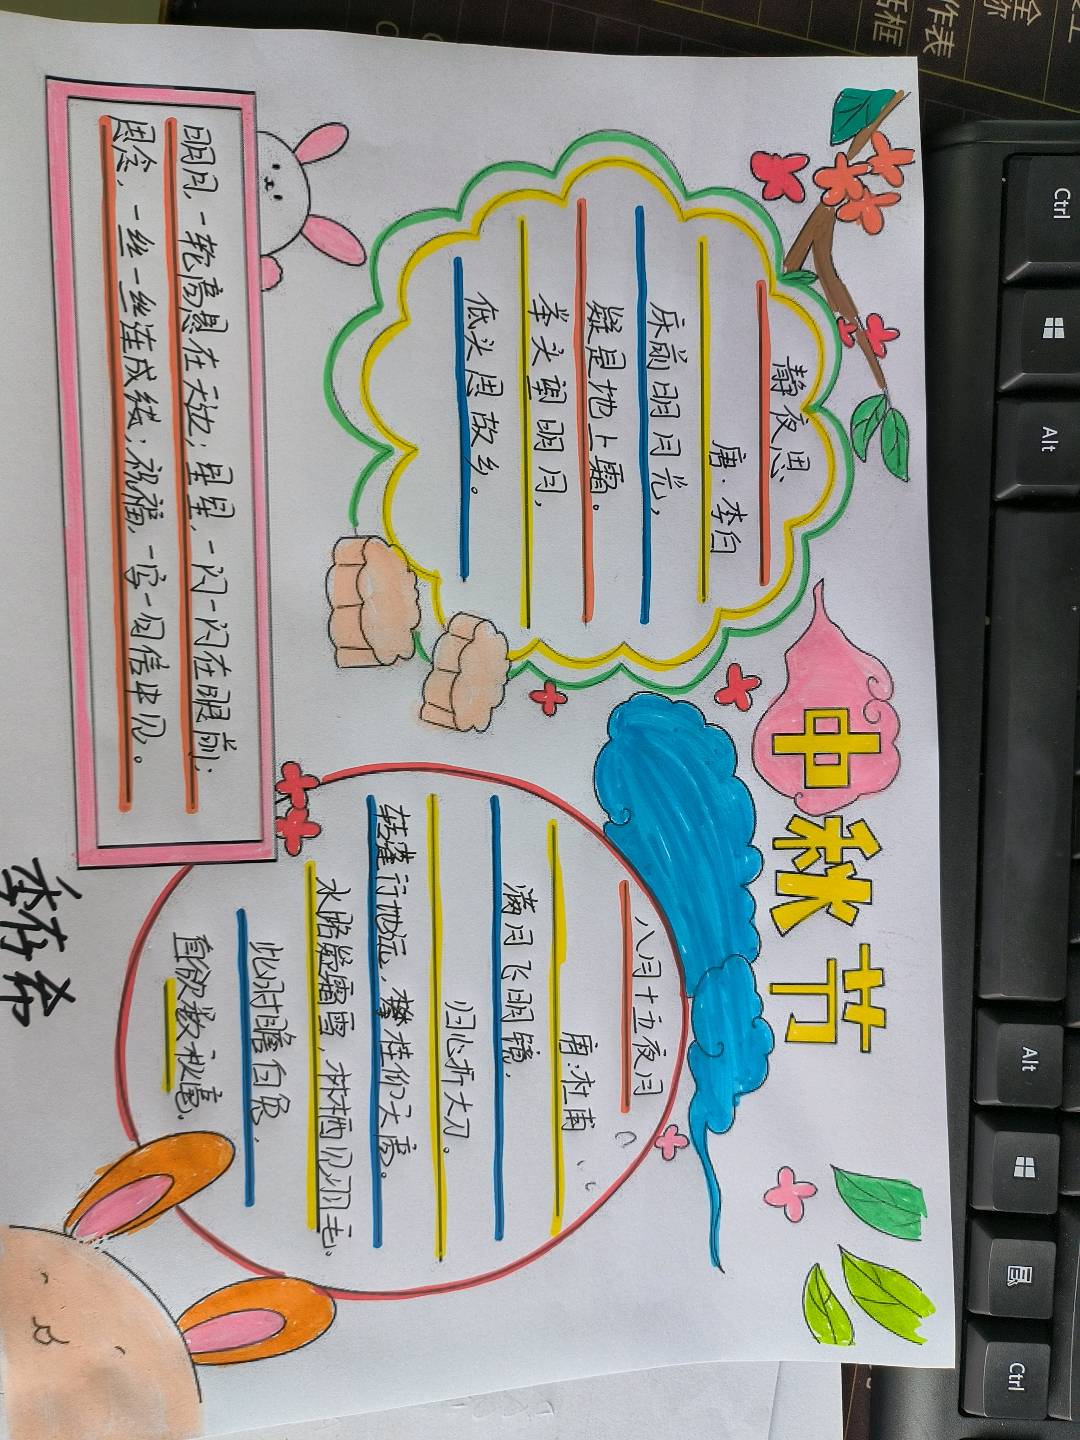 中秋节
静夜思
唐·李白
床前明月光,
疑是地上霜。
举头望明月,
低头思故乡。
八月十五夜月
唐·杜甫
满月飞明镜,
归心折大刀。
转蓬行地远,攀桂仰天高。
水路疑霜雪,林栖见羽毛.
此时瞻白兔,
直欲数秋毫.
明月,一轮高悬在天边;星星,一闪一闪在眼前;
思念,一丝一丝连成线;祝福,一字一句信中见。
Ctrl
Alt
Alt
Ctrl
作表